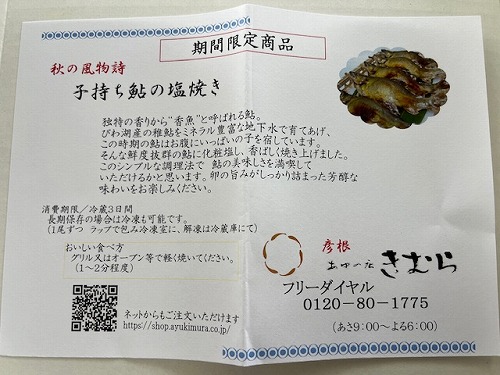 期間限定商品
秋の風物詩
子持ち鮎の塩焼き
独特の香りから"香魚"と呼ばれる鮎。
びわ湖産の稚鮎をミネラル豊富な地下水で育てあげ、
この時期の鮎はお腹にいっぱいの子を宿しています。
そんな鮮度抜群の鮎に化粧塩し、香ばしく焼き上げました。
このシンプルな調理法で 鮎の美味しさを満喫して
いただけるかと思います。卵の旨みがしっかり詰まった芳醇な
味わいをお楽しみください。
消費期限/冷蔵3日間
長期保存の場合は冷凍も可能です。
(1尾ずつ ラップで包み冷凍室に、解凍は冷蔵庫にて)
おいしい食べ方
グリル又はオーブン等で軽く焼いてください。
(1~2分程度)
ネットからもご注文いただけます
https://shop.ayukimura.co.jp/
彦根
あゆの店 きむら
フリーダイヤル
0120-80-1775
(あさ9:00~よる6:00)